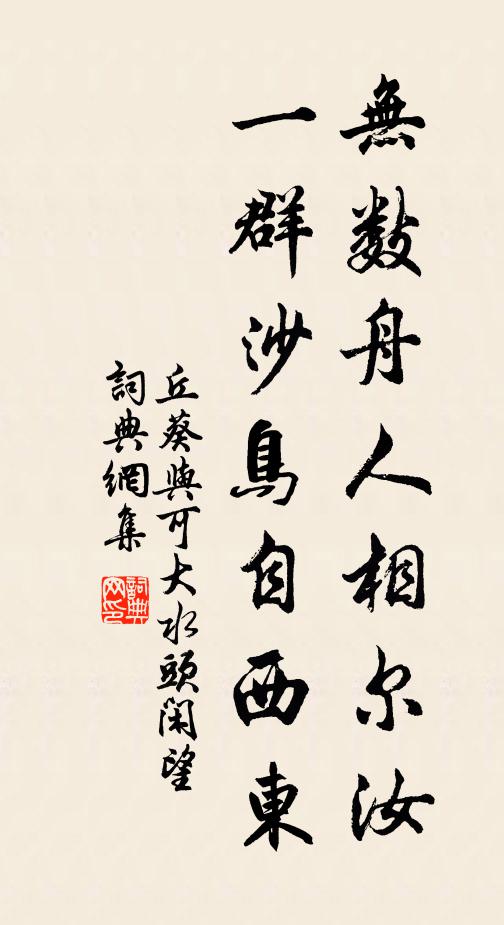 無数舟人相尔汝
一群沙鳥自西東
丘葵與可大水頭閑望
詞典網集
詞典
网印